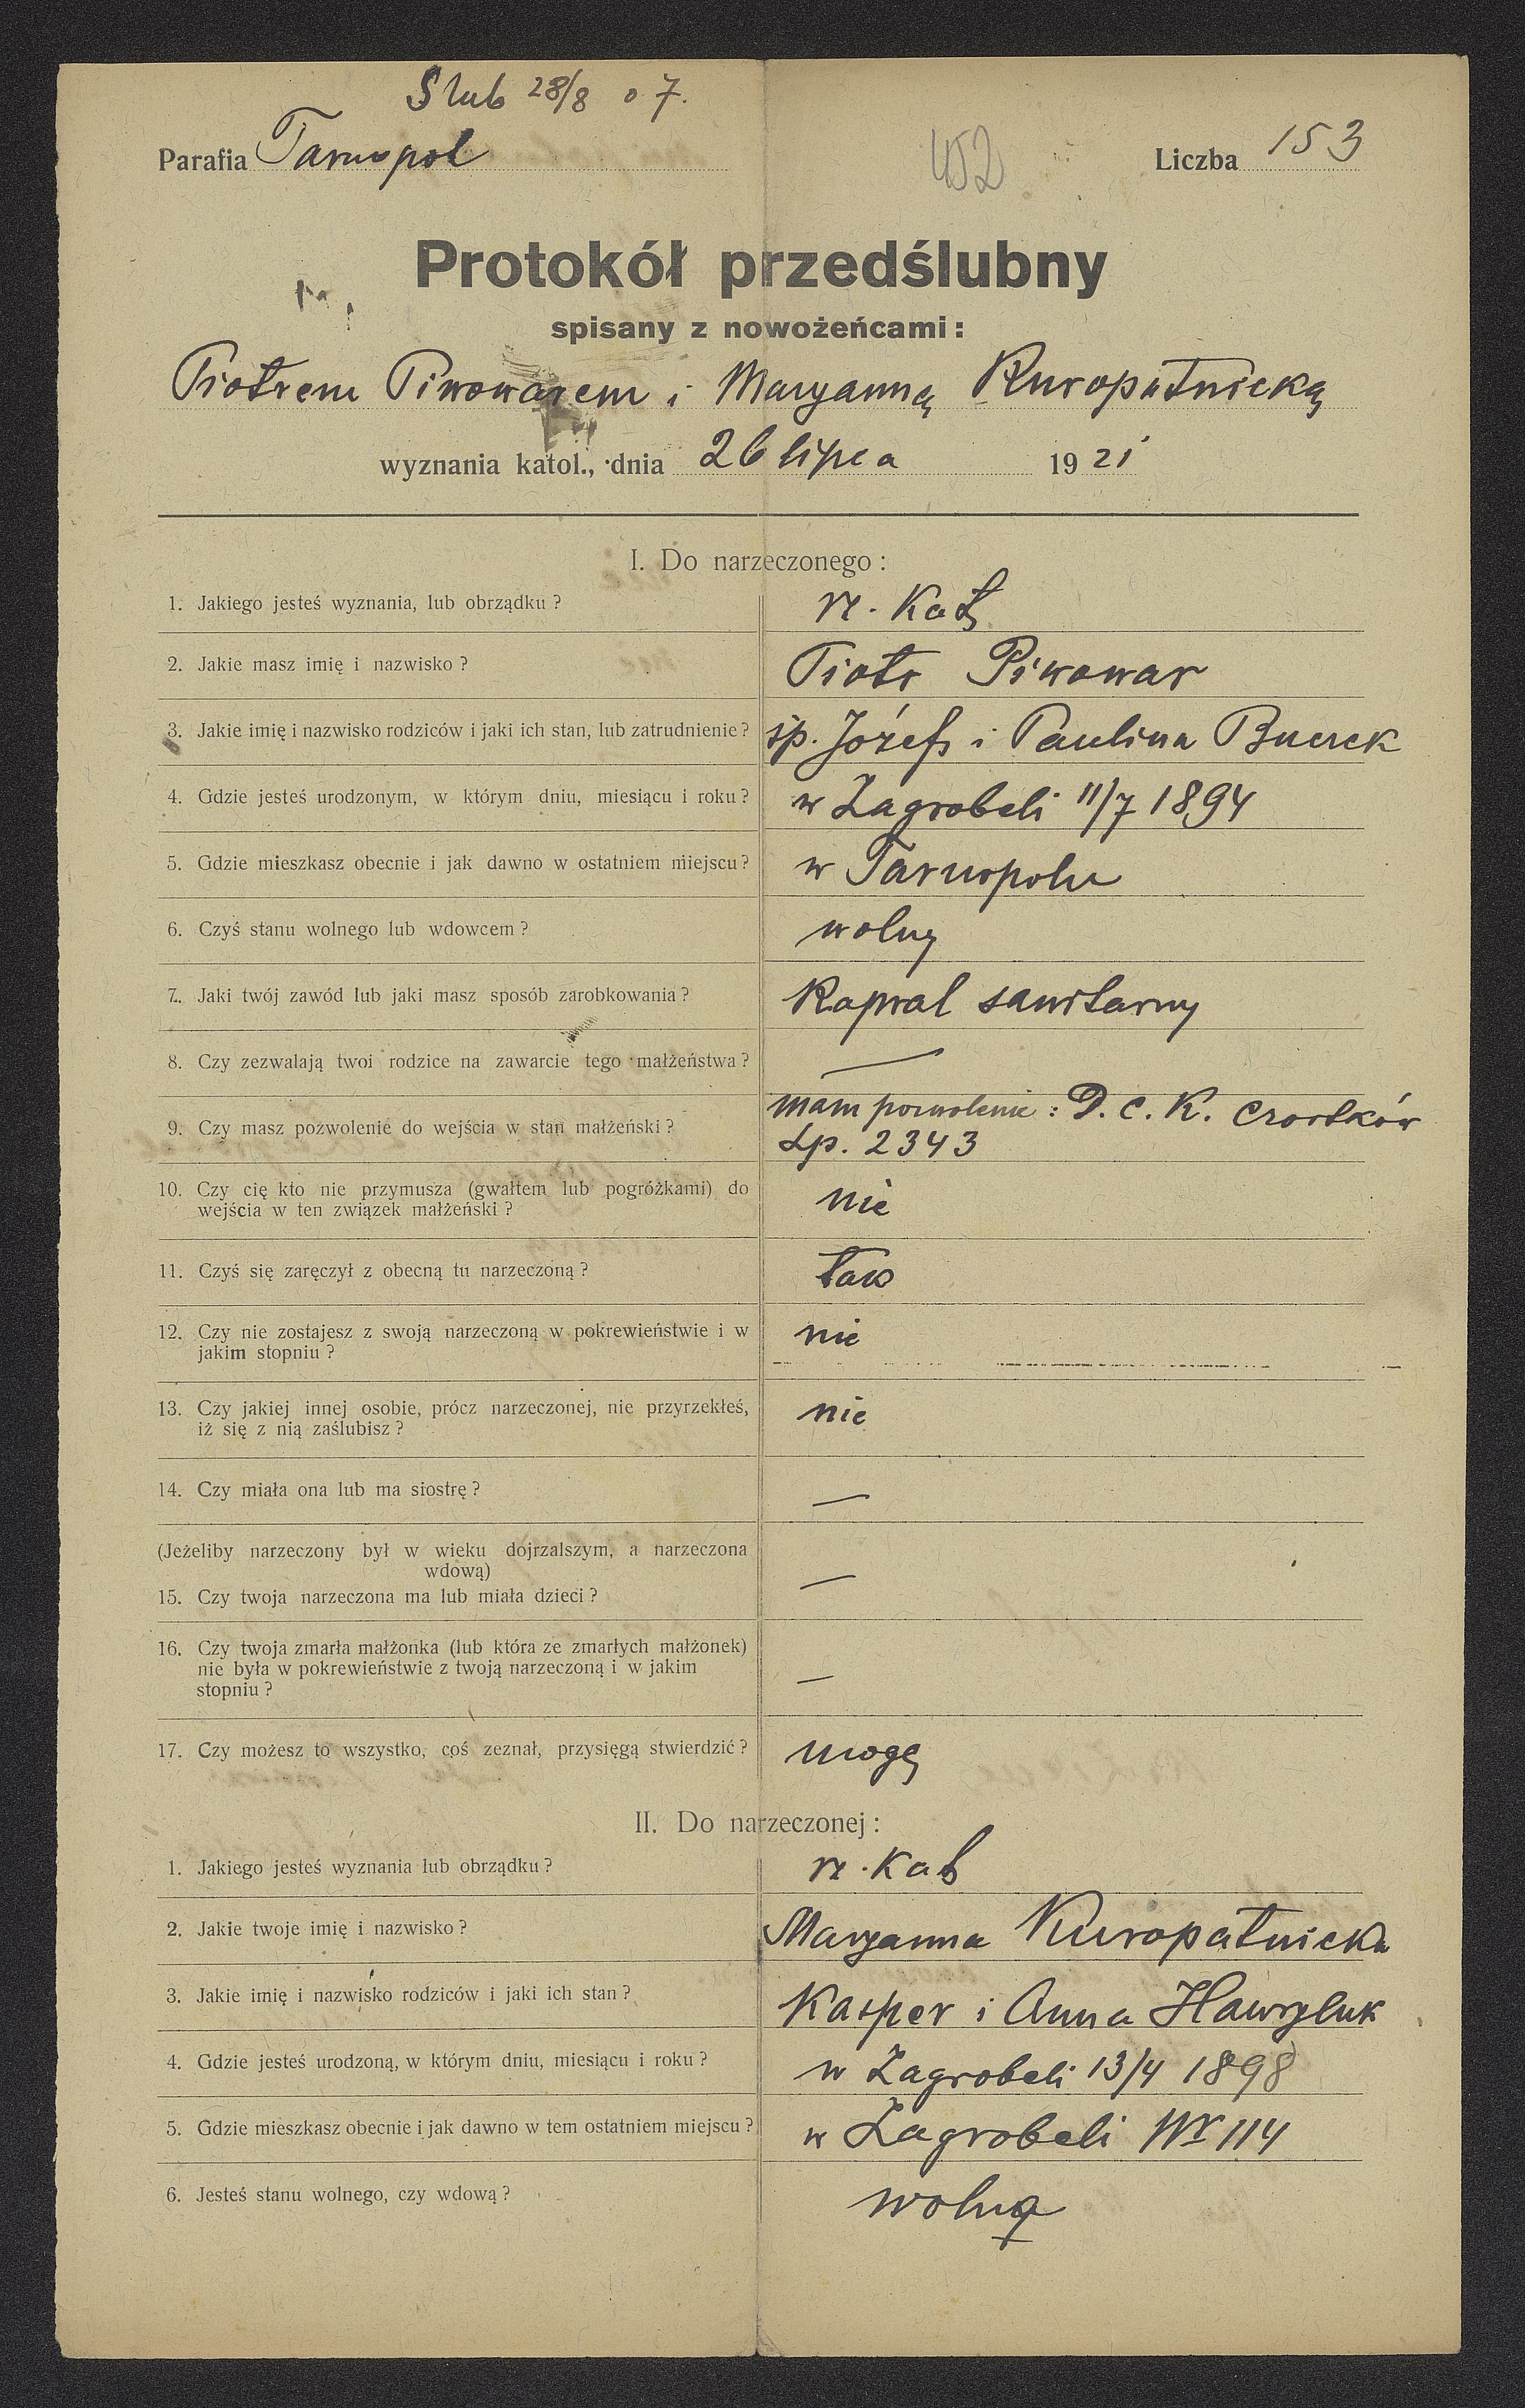 Slub 28/8 o 7.
Parafia Tarnopol
452
Liczba 153
Protokół przedślubny
spisany z nowożeńcami:
Piotrem Piwowarem i Maryanną Kuropatnicką
wyznania katol., dnia 26 lipca 1921
I. Do narzeczonego:
1. Jakiego jesteś wyznania, lub obrządku? rz. kat
2. Jakie masz imię i nazwisko? Piotr Piwowar
3. Jakie imię i nazwisko rodziców i jaki ich stan, lub zatrudnienie? śp. Józef i Paulina
4. Gdzie jesteś urodzonym, w którym dniu, miesiącu i roku? w Zagrobeli 11/7 1894
5. Gdzie mieszkasz obecnie i jak dawno w ostatniem miejscu? w Tarnopolu
6. Czyś stanu wolnego lub wdowcem? wolny
7. Jaki twój zawód lub jaki masz sposób zarobkowania? Kapral sanitarny
8. Czy zezwalają twoi rodzice na zawarcie tego małżeństwa? —
9. Czy masz pozwolenie do wejścia w stan małżeński? mam pozwolenie: D. C. K. Czortków
Lp. 2343
10. Czy cię kto nie przymusza (gwałtem lub pogróżkami) do
wejścia w ten związek małżeński? nie
11. Czyś się zaręczył z obecną tu narzeczoną? tak
12. Czy nie zostajesz z swoją narzeczoną w pokrewieństwie i w
jakim stopniu? nie
13. Czy jakiej innej osobie, prócz narzeczonej, nie przyrzekłeś,
iż się z nią zaślubisz? nie
14. Czy miała ona lub ma siostrę? —
(Jeżeliby narzeczony był w wieku dojrzalszym, a narzeczona
wdową)
15. Czy twoja narzeczona ma lub miała dzieci? —
16. Czy twoja zmarła małżonka (lub która ze zmarłych małżonek)
nie była w pokrewieństwie z twoją narzeczoną i w jakim
stopniu? —
17. Czy możesz to wszystko, coś zeznał, przysięgą stwierdzić? mogę
II. Do narzeczonej:
1. Jakiego jesteś wyznania lub obrządku? rz. kat
2. Jakie twoje imię i nazwisko? Maryanna Kuropatnicka
3. Jakie imię i nazwisko rodziców i jaki ich stan? Kasper i Anna Hawryluk
4. Gdzie jesteś urodzoną, w którym dniu, miesiącu i roku? w Zagrobeli 13/4 1898
5. Gdzie mieszkasz obecnie i jak dawno w tem ostatniem miejscu? w Zagrobeli Nr 114
6. Jesteś stanu wolnego, czy wdową? wolna